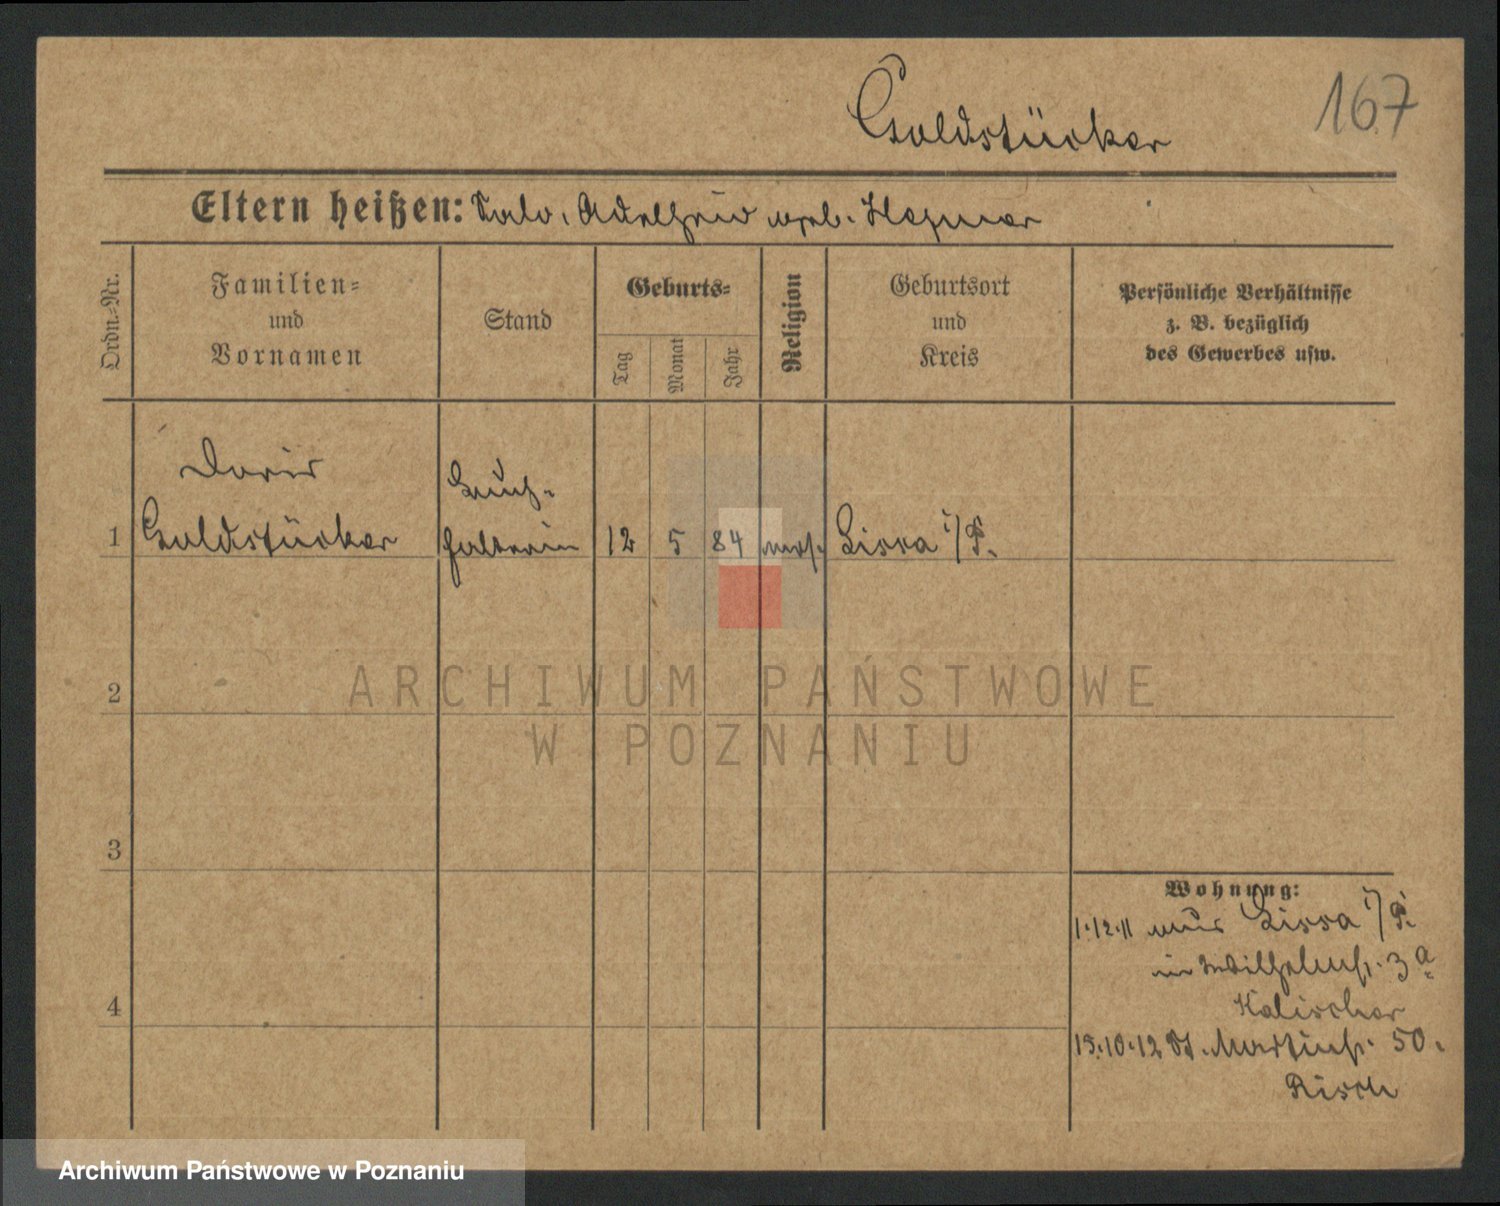 Goldstücker
167
Eltern heißen: Salo, Adelheid geb.
Ordn.-Nr.
Familien-
und
Vornamen
Stand
Geburts-
Tag
Monat
Jahr
Religion
Geburtsort
und
Kreis
Persönliche Verhältnisse
z. B. bezüglich
des Gewerbes usw.
Doris
Buch-
1 Goldstücker halterin 12 5 84 mos. Lissa i/P.
2
ARCHIWUM PAŃSTWOWE
W POZNANIU
3
Wohnung:
1.12.11 aus Lissa i/P.
in Wilhelmstr. 3a
4
Kalischer
15.10.12 St. Martinstr. 50.
Risch
Archiwum Państwowe w Poznaniu